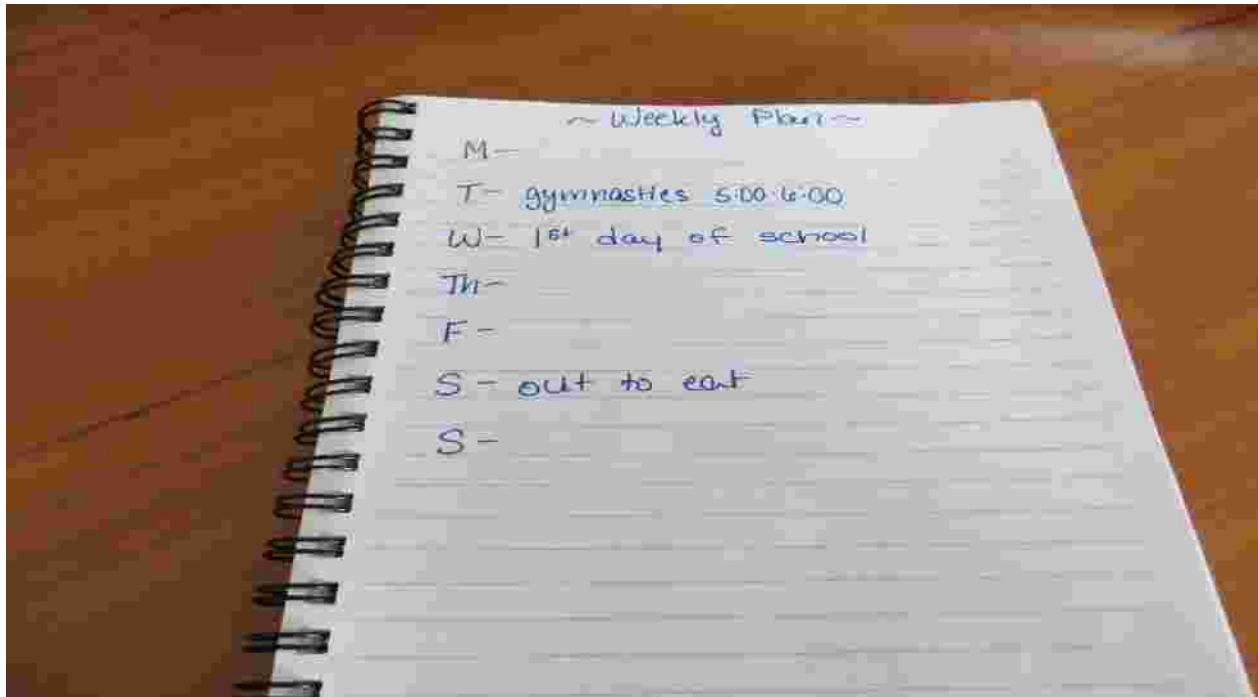 ~ Weekly Plan ~
M-
T- gymnastics 5:00-6:00
W- 1st day of school
Th-
F-
S- out to eat
S-